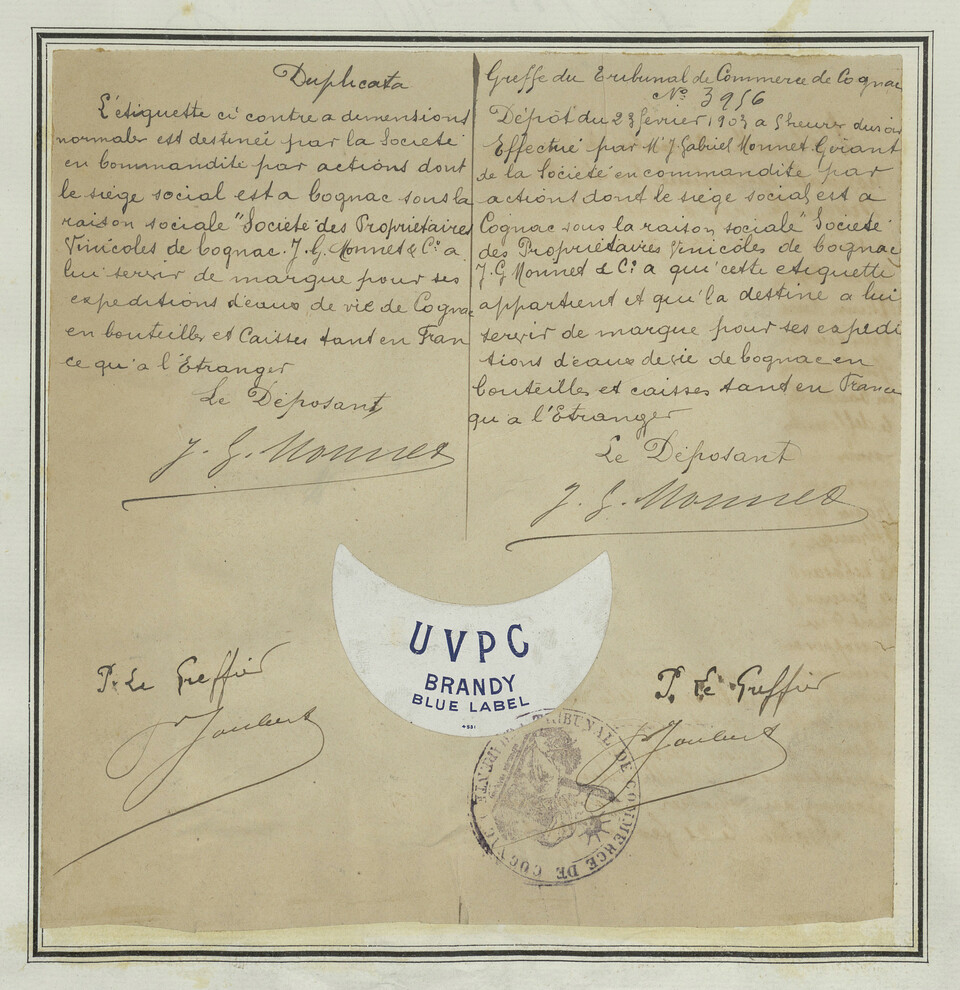 Duplicata
L'étiquette ci contre a dimensions
normales est destineé par la Societé
en Commandite par actions dont
le siège social est a Cognac sous la
raison sociale "Societé des Propriétaires
Vinicoles de Cognac. J. G. Monnet & Cie a
lui servir de marque pour ses
expeditions d'eaux de vie de Cognac
en bouteilles et Caisses tant en Fran
ce qu'a l'Etranger
Le Déposant
J. G. Monnet
Greffe du Tribunal de Commerce de Cognac
No 3956
Dépôt du 23 février 1903 a 5 heures du soir
Effectué par Mr J. Gabriel Monnet Gérant
de la Sociéte en commandite par
actions dont le siège social est a
Cognac sous la raison sociale "Societé
des Propriétaires Vinicoles de Cognac
J. G Monnet & Cie a qui cette etiquette
appartient et qui la destine a lui
servir de marque pour ses expedi
tions d'eaux de vie de Cognac en
bouteilles et caisses tant en France
qu'a l'Etranger
Le Déposant
J. G. Monnet
UVPC
BRANDY
BLUE LABEL
P. Le Greffier
Joubert
P. Le Greffier
Joubert
TRIBUNAL DE COMMERCE DE COGNAC